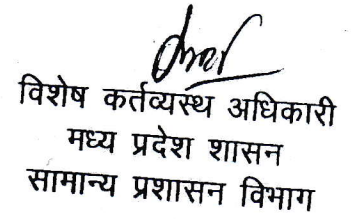 विशेष कर्तव्यस्थ अधिकारी
मध्य प्रदेश शासन
सामान्य प्रशासन विभाग